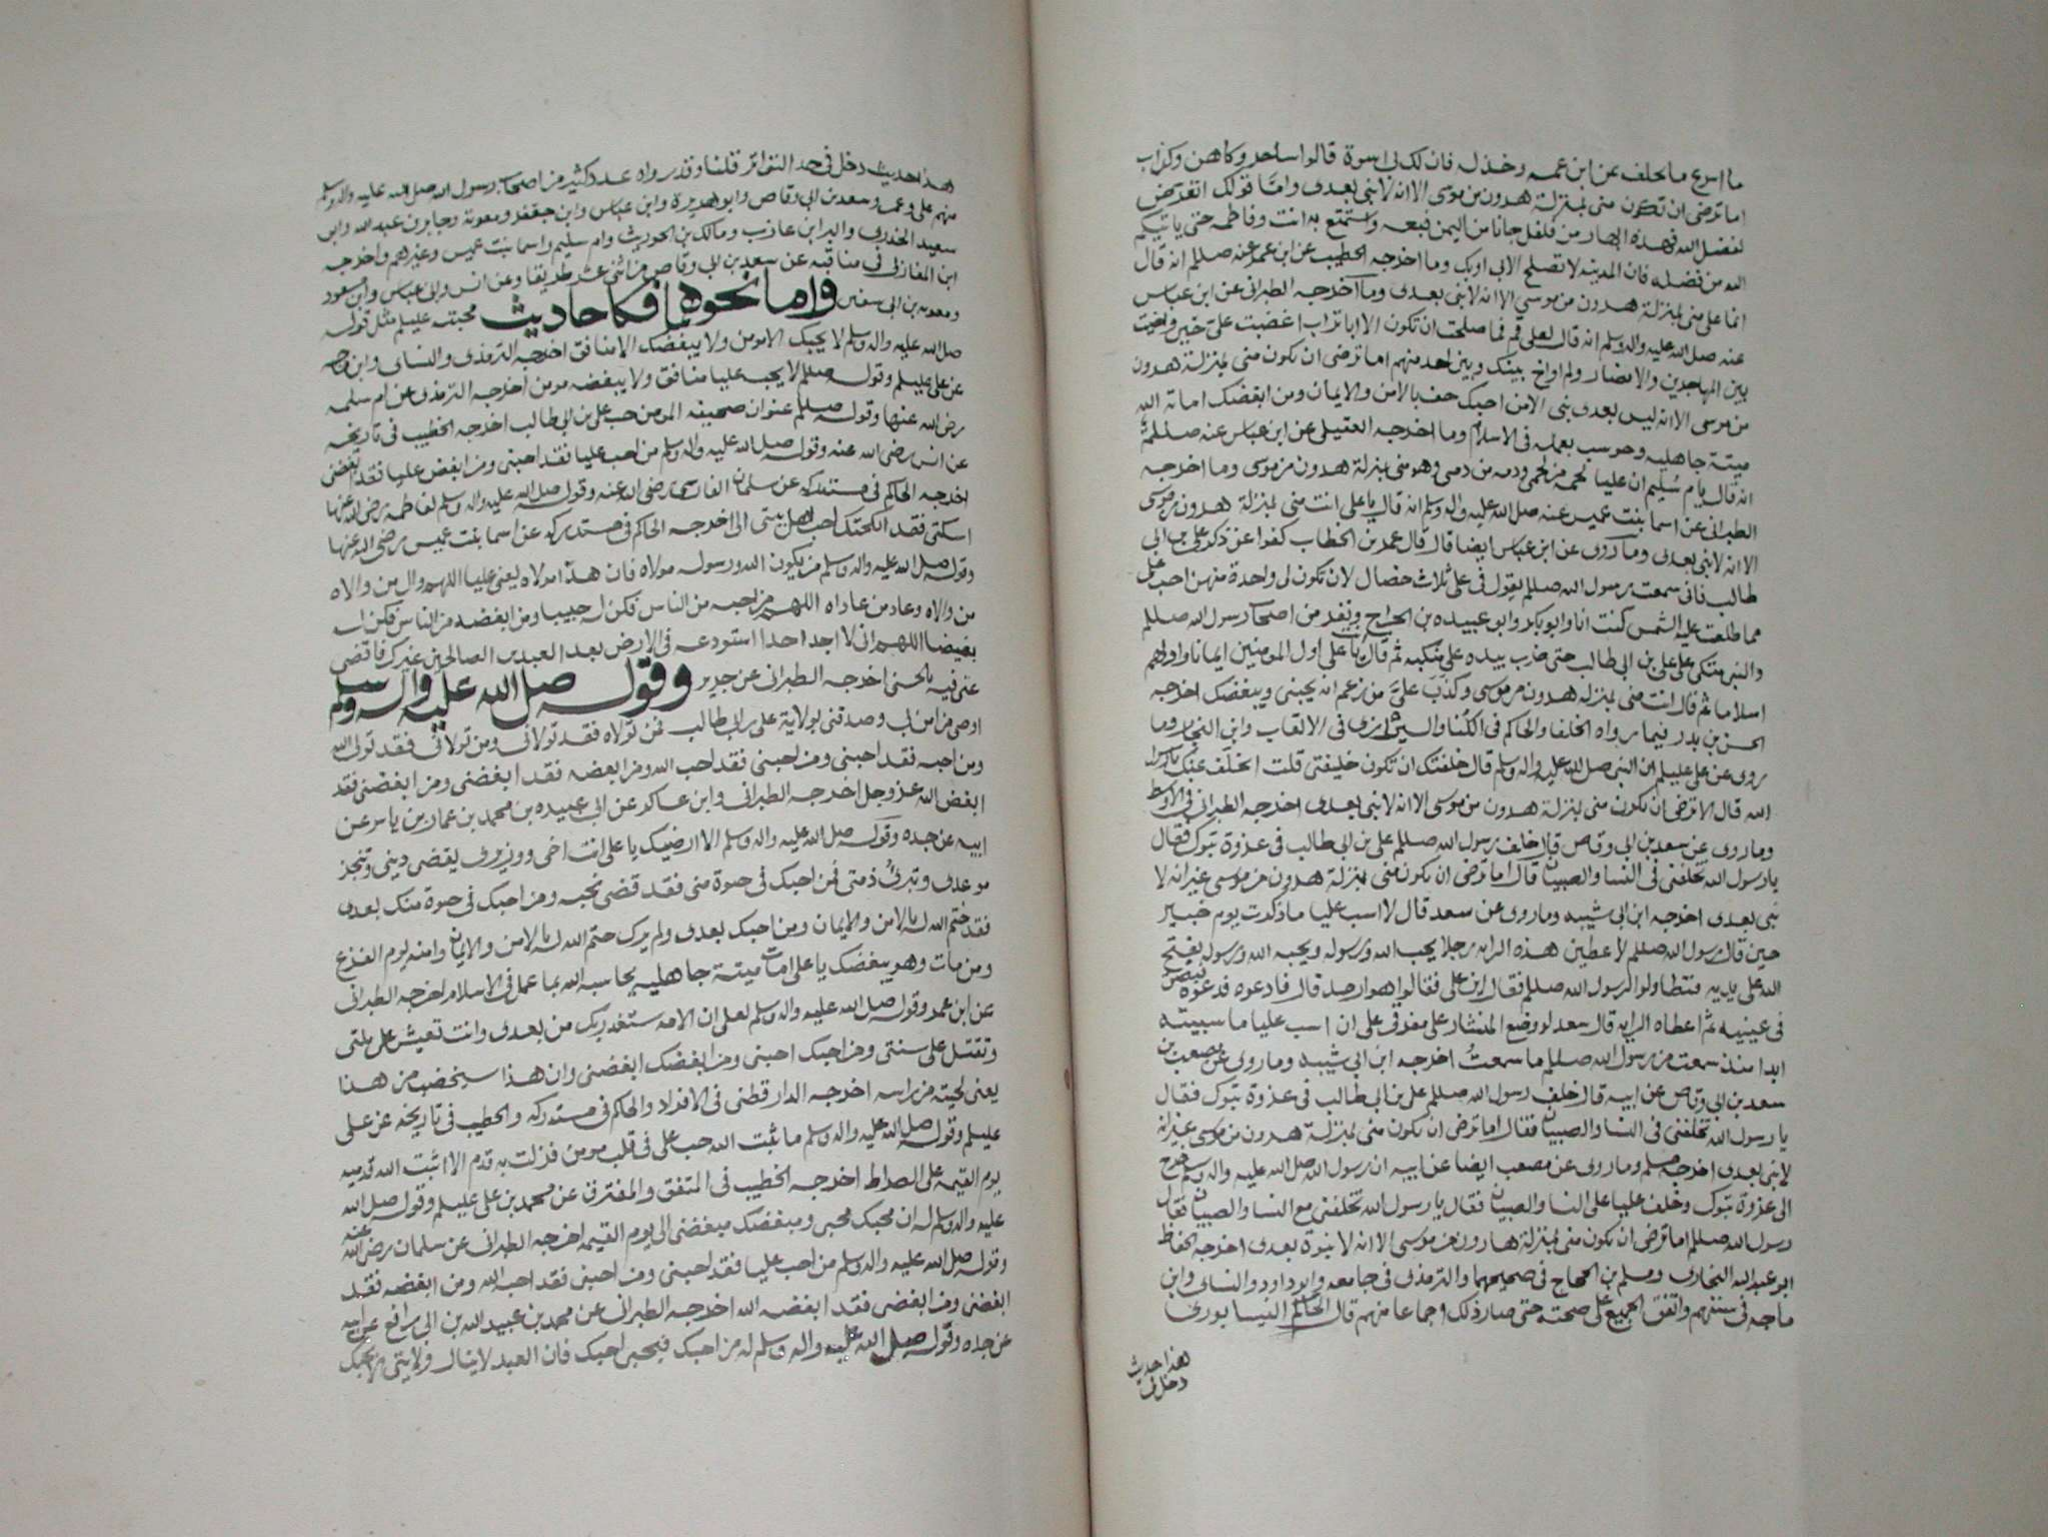 ما اسرع ما تخلف عن ابن عمه وخذله فان لك لى اسوة قالوا ساحر وكاهن وكذاب
اما ترضى ان تكون منى بمنزلة هرون من موسى الا انه لا نبى بعدى واما قولك اتعرض
لفضل الله فهذه ابهار من فلفل جانا من اليمن فبعه واستمتع به انت وفاطمه حتى ياتيكم
الله من فضله فان المدينه لا تصلح الا بى او بك وما اخرجه الخطيب عن ابن عمر عنه صللم انه قال
انما على منى بمنزلة هرون من موسى الا انه لا نبى بعدى وما اخرجه الطبرانى عن ابن عباس
عنه صلى الله عليه واله وسلم انه قال لعلى قم فما صلحت ان تكون الا ابا تراب اغضبت على حين واخيت
بين المهاجرين والانصار ولم اواخ بينك وبين احد منهم اما ترضى ان تكون منى بمنزلة هرون
من موسى الا انه ليس بعدى نبى الا من احبك حف بالامن والايمان ومن ابغضك اماته الله
ميتة جاهليه وحوسب بعمله فى الاسلام وما اخرجه العقيلى عن ابن عباس عنه صللم
انه قال يا ام سليم ان عليا لحمه من لحمى ودمه من دمى وهو منى بمنزلة هرون من موسى وما اخرجه
الطبرانى عن اسما بنت عميس عنه صلى الله عليه واله وسلم انه قال يا على انت منى بمنزلة هرون من موسى
الا انه لا نبى بعدى وما روى عن ابن عباس ايضا قال قال عمر بن الخطاب كفوا عن ذكر على بن ابى
طالب فانى سمعت رسول الله صللم يقول فى على ثلاث خصال لان تكون لى واحدة منهن احب على
مما طلعت عليه الشمس كنت انا وابو بكر وابو عبيده بن الجراح ونفر من اصحاب رسول الله صللم
والنبى متكى على على بن ابى طالب حتى ضرب بيده على منكبه ثم قال يا على اول المومنين ايمانا واولهم
اسلاما ثم قال انت منى بمنزلة هرون من موسى وكذب على من زعم انه يحبنى ويبغضك اخرجه
الحسن بن بدر فيما رواه الخلفا والحاكم فى الكنا والشيرازى فى الالقاب وابن النجار وما
روى عن على عليلم ان النبى صلى الله عليه واله وسلم قال خلفتك ان تكون خليفتى قلت اتخلف عنك يا رسول
الله قال الا ترضى ان تكون منى بمنزلة هرون من موسى الا انه لا نبى بعدى اخرجه الطبرانى فى الاوسط
وما روى عن سعد بن ابى وقاص قال خلف رسول الله صللم على بن ابى طالب فى غزوة تبوك فقال
يا رسول الله تخلفنى فى النسا والصبيان قال اما ترضى ان تكون منى بمنزلة هرون من موسى غير انه لا
نبى بعدى اخرجه ابن ابى شيبه وما روى عن سعد قال لا اسب عليا ما ذكرت يوم خيبر
حين قال رسول الله صللم لاعطين هذه الرايه رجلا يحب الله ورسوله ويحبه الله ورسوله يفتح
الله على يديه فتطاولوا لرسول الله صللم فقال اين على فقالوا هو ارمد قال فادعوه فدعوه فبصق
فى عينيه ثم اعطاه الرايه قال سعد لو وضع المنشار على مفرقى على ان اسب عليا ما سببته
ابدا منذ سمعت من رسول الله صللم ما سمعت اخرجه ابن ابى شيبه وما روى عن مصعب بن
سعد بن ابى وقاص عن ابيه قال خلف رسول الله صللم على بن ابى طالب فى غزوة تبوك فقال
يا رسول الله تخلفنى فى النسا والصبيان فقال اما ترضى ان تكون منى بمنزلة هرون من موسى غير انه
لا نبى بعدى اخرجه مسلم وما روى عن مصعب ايضا عن ابيه ان رسول الله صلى الله عليه واله وسلم خرج
الى غزوة تبوك وخلف عليا على النسا والصبيان فقال يا رسول الله تخلفنى مع النسا والصبيان فقال
رسول الله صللم اما ترضى ان تكون منى بمنزلة هارون من موسى الا انه لا نبوة بعدى اخرجه الحفاظ
ابو عبد الله البخارى ومسلم بن الحجاج فى صحيحهما والترمذى فى جامعه وابو داود والنساى وابن
ماجه فى سننهم واتفق الجميع على صحته حتى صار ذلك اجماعا منهم قال الحاكم النيسابورى
هذا حديث
دخل فى
هذا حديث دخل فى حد التواتر قلنا وقد رواه عدد كثير من اصحاب رسول الله صلى الله عليه واله وسلم
منهم على وعمر وسعد بن ابى وقاص وابو هريرة وابن عباس وابن جعفر ومعوية وجابر بن عبد الله وابو
سعيد الخدرى والبرا بن عازب ومالك بن الحويرث وام سليم واسما بنت عميس وغيرهم واخرجه
ابن المغازلى فى مناقبه عن سعد بن ابى وقاص من اثنى عشر طريقا وعن انس وابى عباس وابن مسعود
ومعويه بن ابى سفين واما نحوها فكاحاديث محبته عليلم مثل قوله
صلى الله عليه واله وسلم لا يحبك الا مومن ولا يبغضك الا منافق اخرجه الترمذى والنساى وابن ماجه
عن على عليلم وقوله صللم لا يحب عليا منافق ولا يبغضه مومن اخرجه الترمذى عن ام سلمه
رضى الله عنها وقوله صللم عنوان صحيفه المومن حب على بن ابى طالب اخرجه الخطيب فى تاريخه
عن انس رضى الله عنه وقوله صلى الله عليه واله وسلم من احب عليا فقد احبنى ومن ابغض عليا فقد ابغضنى
اخرجه الحاكم فى مستدركه عن سلمان الفارسى رضى الله عنه وقوله صلى الله عليه واله وسلم لفاطمه رضى الله عنها
اسكتى فقد انكحتك احب اهل بيتى الى اخرجه الحاكم فى مستدركه عن اسما بنت عميس رضى الله عنها
وقوله صلى الله عليه واله وسلم من يكون الله ورسوله مولاه فان هذا مولاه يعنى عليا اللهم وال من والاه
من والاه وعاد من عاداه اللهم من احبه من الناس فكن له حبيبا ومن ابغضه من الناس فكن له
بغيضا اللهم انى لا اجد احدا استودعه فى الارض بعد العبدين الصالحين غيرك فاقض
عنى فيه بالحسنى اخرجه الطبرانى عن جرير وقوله صلى الله عليه واله وسلم
اوصى من امن بى وصدقنى بولاية على بن ابى طالب فمن تولاه فقد تولانى ومن تولانى فقد تولى الله
ومن احبه فقد احبنى ومن احبنى فقد احب الله ومن ابغضه فقد ابغضنى ومن ابغضنى فقد
ابغض الله عز وجل اخرجه الطبرانى وابن عساكر عن ابى عبيده بن محمد بن عمار بن ياسر عن
ابيه عن جده وقوله صلى الله عليه واله وسلم الا ارضيك يا على انت اخى ووزيرى يقضى دينى وتنجز
موعدى وتبرئ ذمتى فمن احبك فى حيوة منى فقد قضى نحبه ومن احبك فى حيوة منك بعدى
فقد ختم الله له بالامن والايمان ومن احبك بعدى ولم يرك ختم الله له بالامن والايمان وامنه يوم الفزع
ومن مات وهو يبغضك يا على مات ميتة جاهلية يحاسبه الله بما عمل فى الاسلام اخرجه الطبرانى
عن ابن عمر وقوله صلى الله عليه واله وسلم لعلى ان الامه ستغدر بك من بعدى وانت تعيش على ملتى
وتقتل على سنتى ومن احبك احبنى ومن ابغضك ابغضنى وان هذا سيخضب من هذا
يعنى لحيته من راسه اخرجه الدار قطنى فى الافراد والحاكم فى مستدركه والخطيب فى تاريخه عن على
عليلم وقوله صلى الله عليه واله وسلم ما ثبت الله حب على فى قلب مومن فزلت به قدم الا اثبت الله قدميه
يوم القيمه على الصراط اخرجه الخطيب فى المتفق والمفترق عن محمد بن على عليلم وقوله صلى الله
عليه واله وسلم له ان محبك محبى ومبغضك مبغضى الى يوم القيمه اخرجه الطبرانى عن سلمان رضى الله عنه
وقوله صلى الله عليه واله وسلم من احب عليا فقد احبنى ومن احبنى فقد احب الله ومن ابغضه فقد
ابغضنى ومن ابغضنى فقد ابغضه الله اخرجه الطبرانى عن محمد بن عبيد الله بن ابى رافع عن ابيه
عن جده وقوله صلى الله عليه واله وسلم له من احبك فبحبى احبك فان العبد لا ينال ولايتى الا بحبك